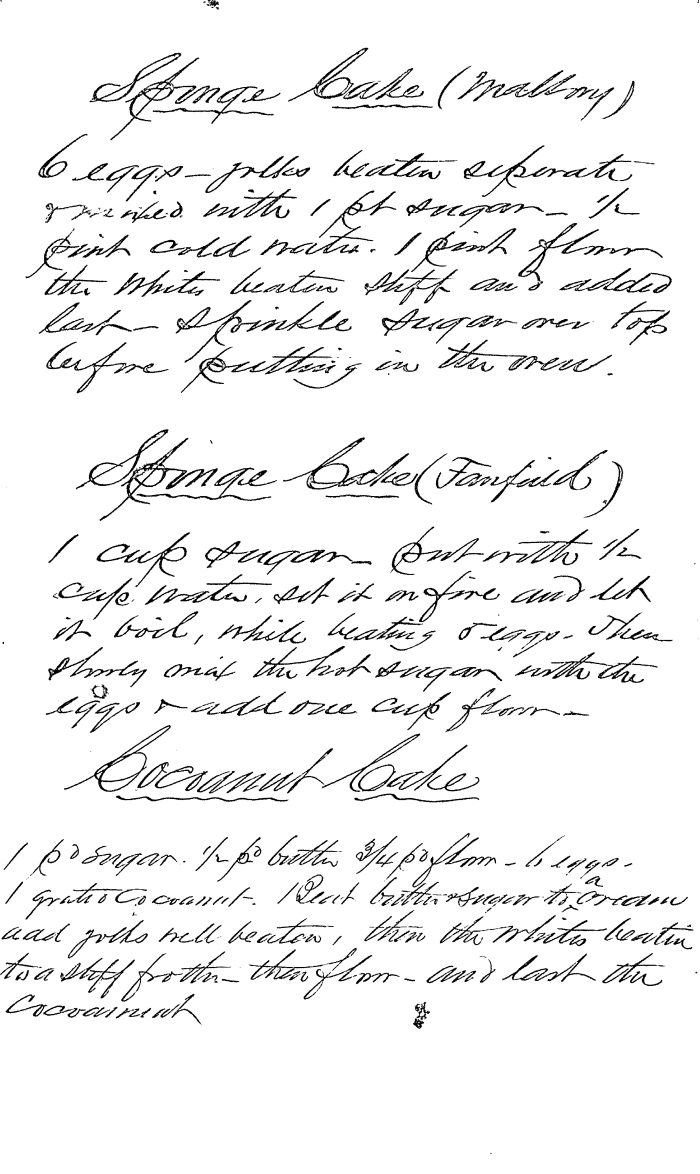 Sponge Cake (Mallory)
6 eggs – yolks beaten seperate
& mixed with 1 pt sugar – 1/2
pint cold water. 1 pint flour
the whites beaten stiff and added
last – sprinkle sugar over top
before putting in the oven.
Sponge Cake (Fanfield)
1 cup sugar – put with 1/2
cup water, set it on fire and let
it boil, while beating 5 eggs. Then
slowly mix the hot sugar with the
eggs & add one cup flour –
Cocoanut Cake
1 pd sugar. 1/2 pd butter 3/4 pd flour – 6 eggs –
1 grated Cocoanut. Beat butter & sugar to a cream
add yolks well beaten, then the whites beaten
to a stiff froth – then flour – and last the
Cocoanut